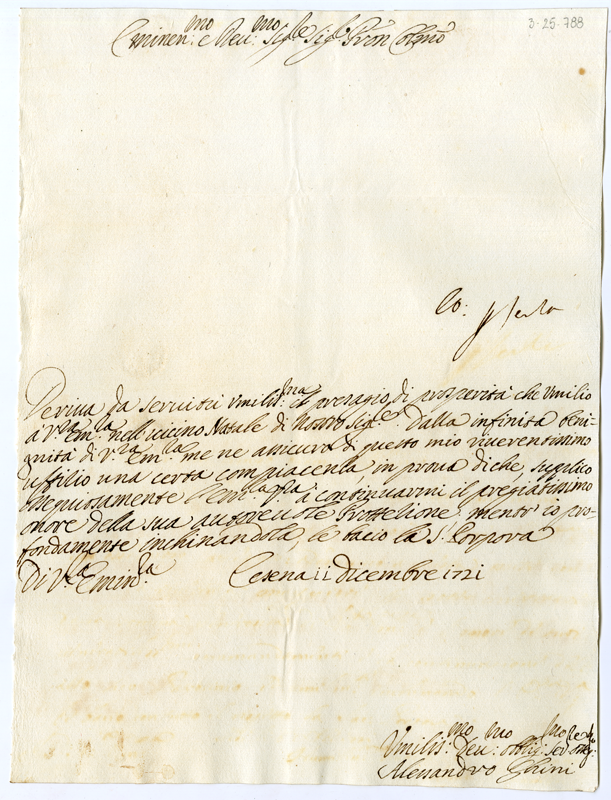 3-25-788
Eminen:mo e Reu:mo Sig:re Sig:r Pron Colmo
Deriua da seruitù vmilis:ma il presagio di prosperità che vmilio
à V:ra Em:la nell'uicino Natale di Nostro Sig:re. Dalla infinita beni-
gnità di V:ra Em:la me ne assicura di questo mio riuerentissimo
uffizio una certa compiacenza, in proua di che, suplico
ossequiosamente l'Em:a V:ra à continuarmi il pregiatissimo
onore della sua autoreuole Prottezione, mentr'io pro-
fondamente inchinandola, le bacio la S: Porpora
Di V:ra Emin:la Cesena 11 dicembre 1721
Vmilis:mo Deu:mo Obblig:mo
Alessandro Ghini